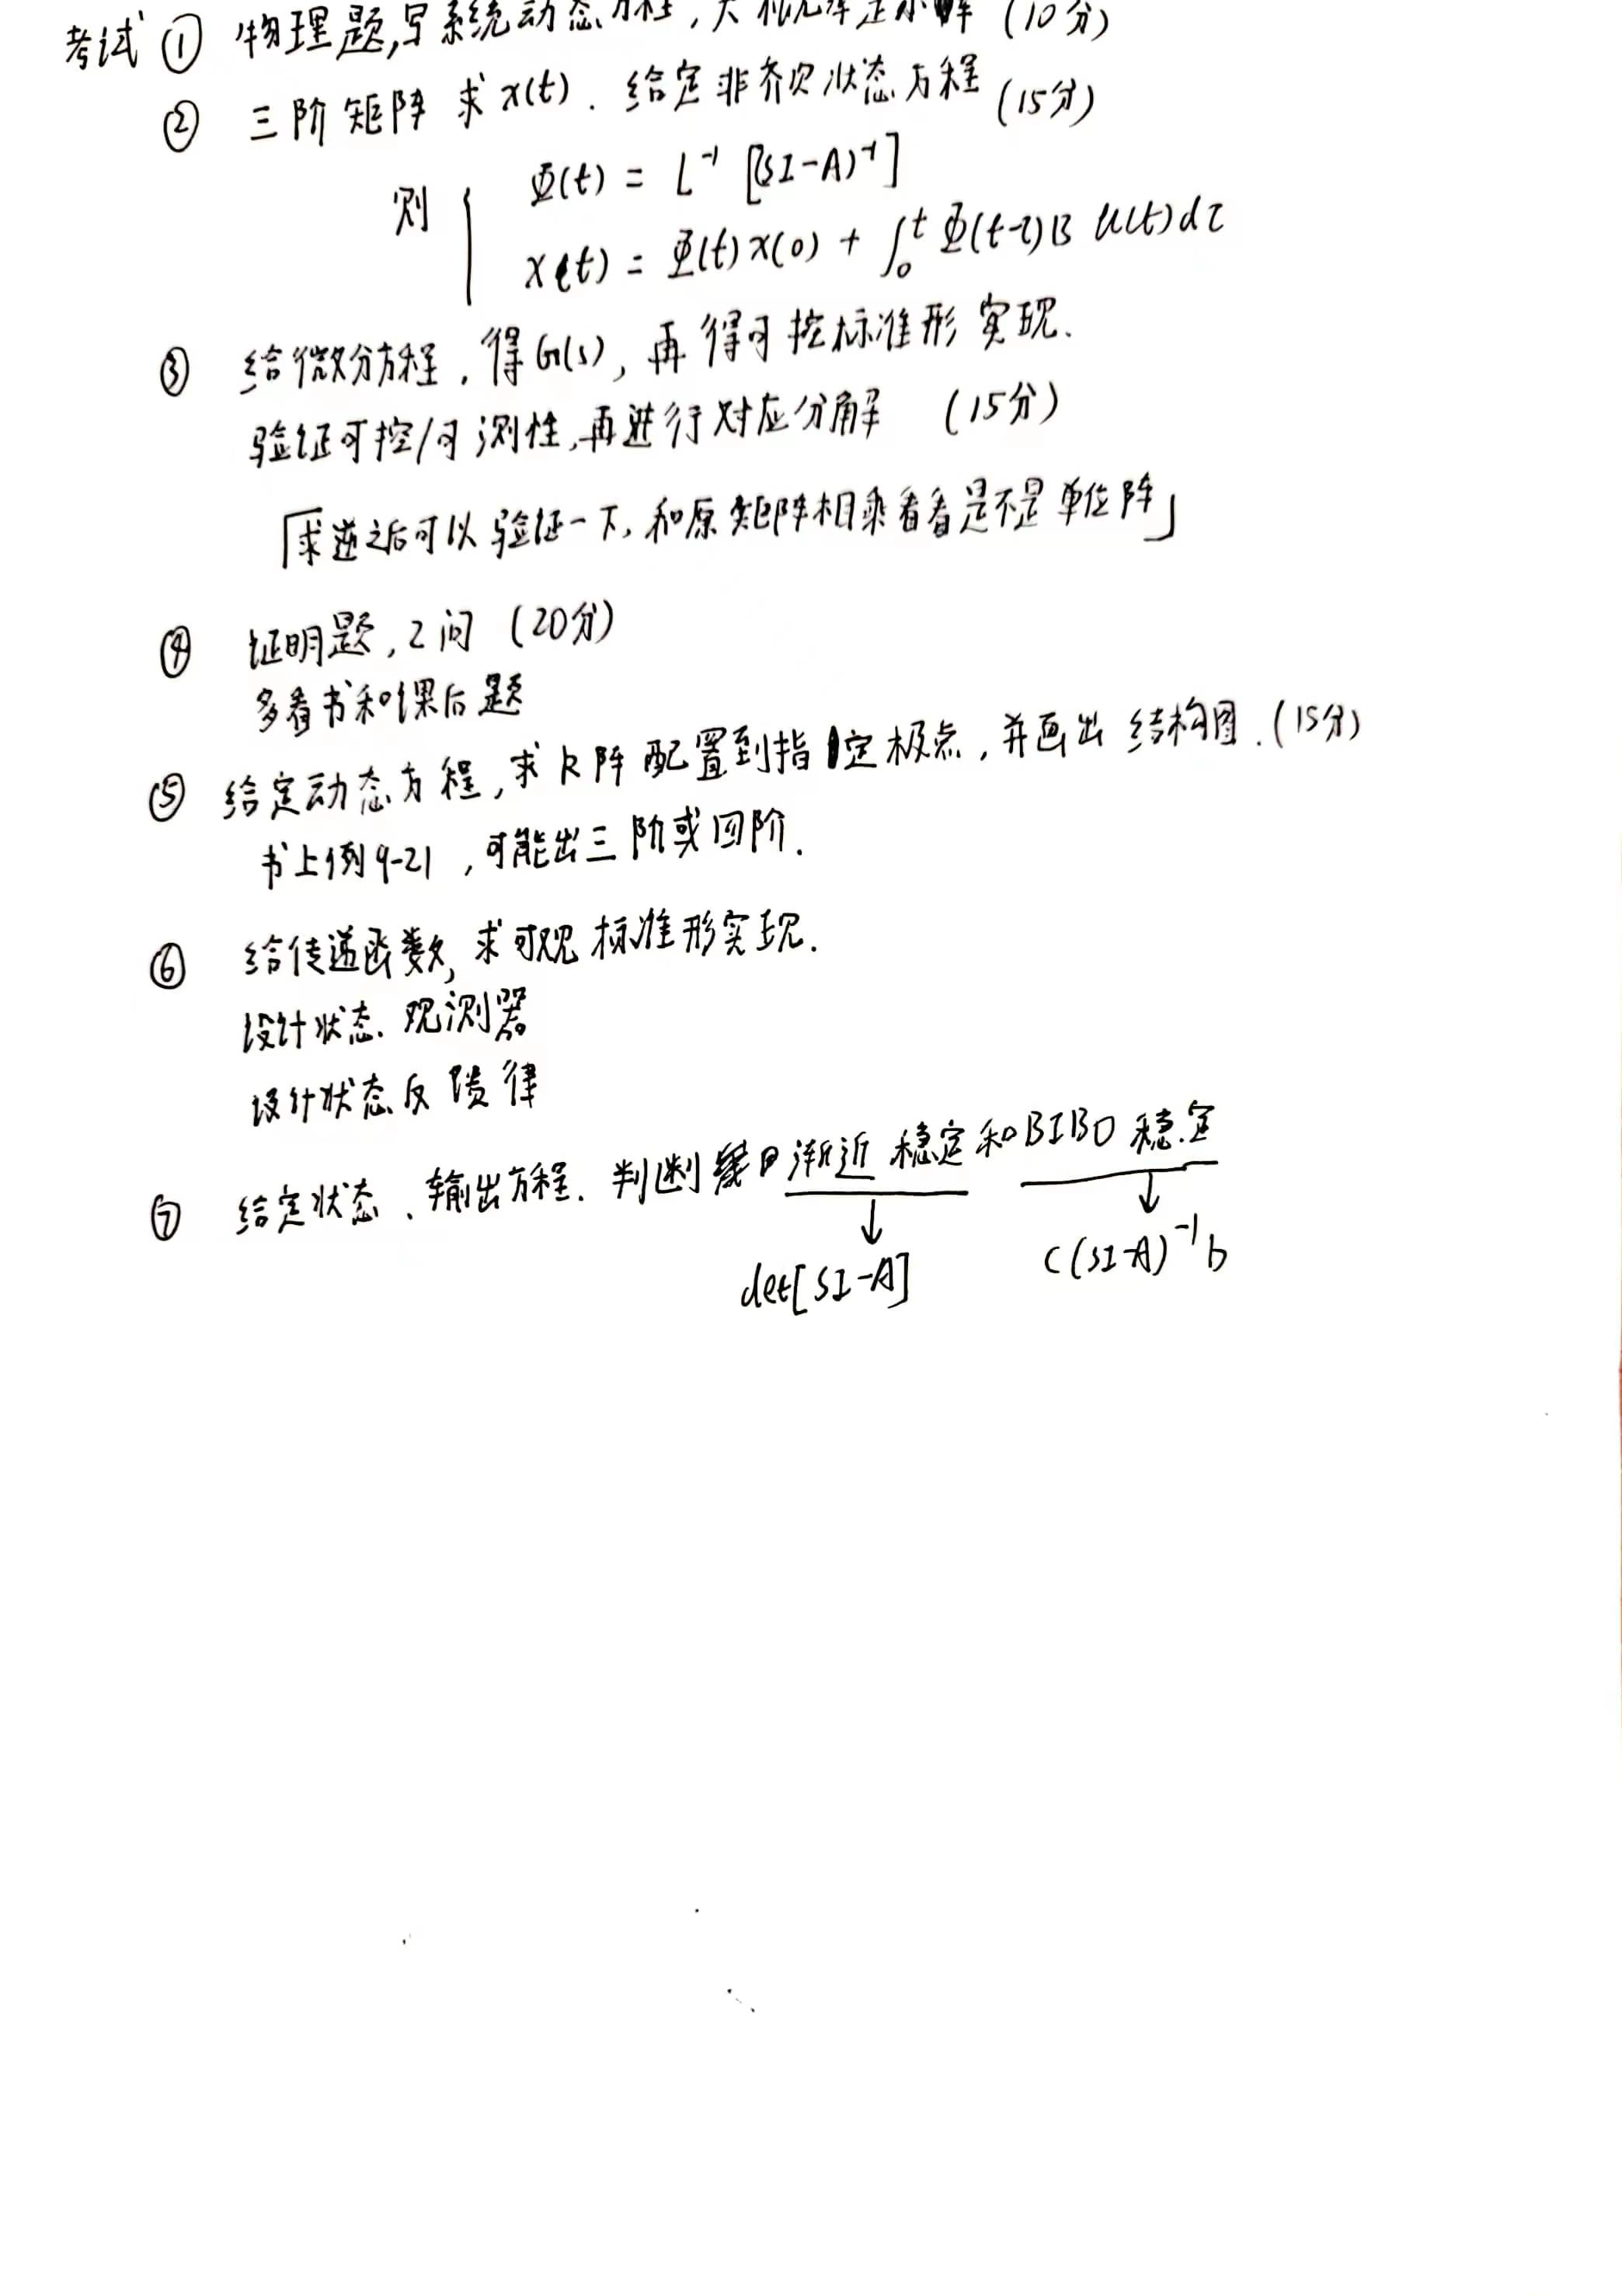 考试 ① 物理题,写系统动态方程, (10分)
② 三阶矩阵 求x(t). 给定非齐次状态方程 (15分)
则 { Φ(t) = L⁻¹ [(SI-A)⁻¹]
x(t) = Φ(t)x(0) + ∫₀ᵗ Φ(t-τ)B u(t)dτ
③ 给微分方程, 得G(s), 再得可控标准形实现.
验证可控/可测性,再进行对应分解 (15分)
「求逆之后可以验证一下, 和原矩阵相乘看看是不是单位阵」
④ 证明题, 2问 (20分)
多看书和课后题
⑤ 给定动态方程, 求K阵配置到指定极点, 并画出结构图. (15分)
书上例9-21, 可能出三阶或四阶.
⑥ 给传递函数, 求可观标准形实现.
设计状态观测器
设计状态反馈律
⑦ 给定状态、输出方程. 判断渐近稳定和BIBO稳定
↓ ↓
det[SI-A] c(SI-A)⁻¹b